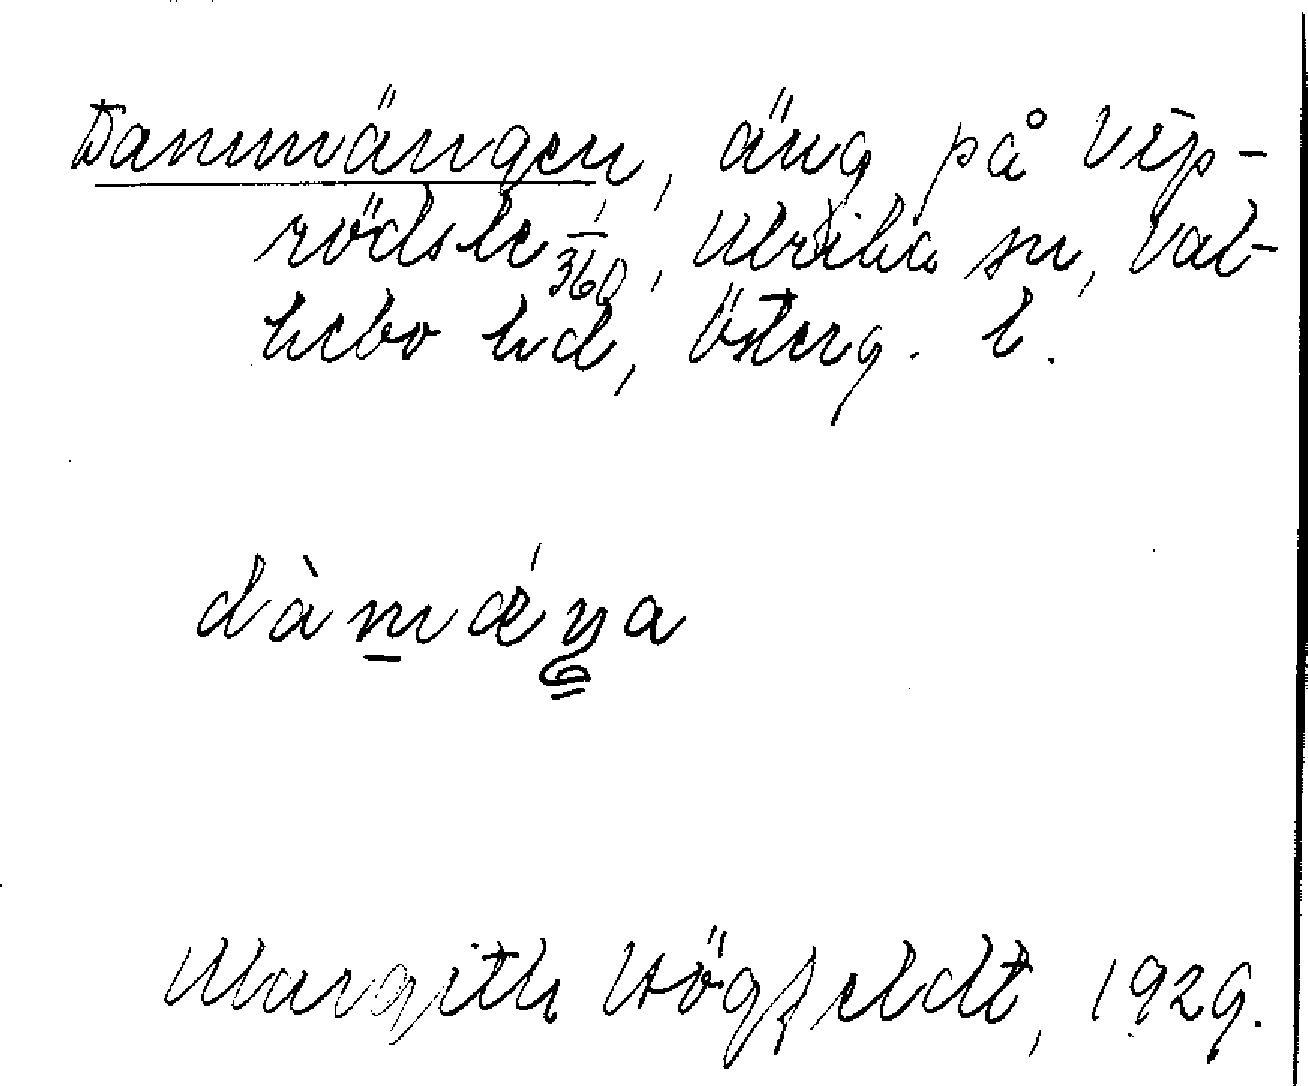 Dammängen, äng på Vip-
rödsle 1/360, Ulrika sn, Val-
kebo hd, Österg. l.
dàmǽŋa
Margith Högfeldt, 1929.